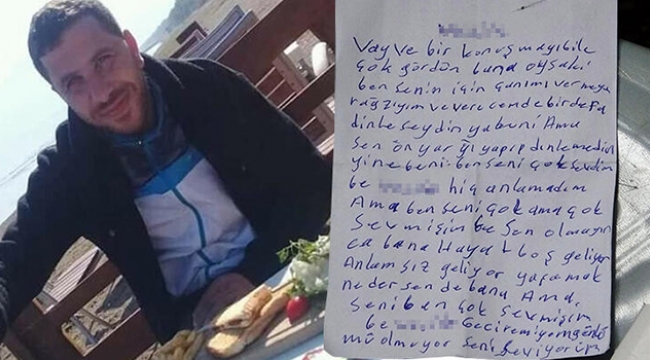 Vay ve bir konuşmayıbile
çok gördün bana oysaki
ben senin için canımı vermeye
rağzıyım ve verecemde birdefa
dinleseydin ya beni Ama
sen ön yargı yapıp dinlemedin
yine beni ben seni çok sevdim
be hiç anlamadım
Ama ben seni çok ama çok
Sevmişim be sen olmayın
ca bana Hayat boş geliyor
Anlamsız geliyor yaşamak
neder sen de bana Ama,
Seni ben çok sevmişim
be Geciremiyom
mü olmuyor Seni Seviyorum